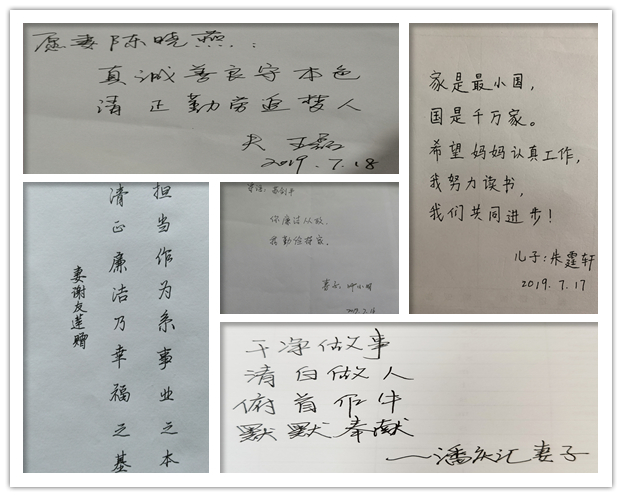 愿妻陈晓燕：
真诚善良守本色
清正勤劳追梦人
夫 王磊
2019.7.18
家是最小国，
国是千万家。
希望妈妈认真工作，
我努力读书，
我们共同进步！
儿子：朱霆轩
2019.7.17
担当作为系事业之本
清正廉洁乃幸福之基
妻谢友莲赠
你廉洁从政，
我勤俭持家。
干净做事
清白做人
俯首作牛
默默奉献
——潘庆汇妻子